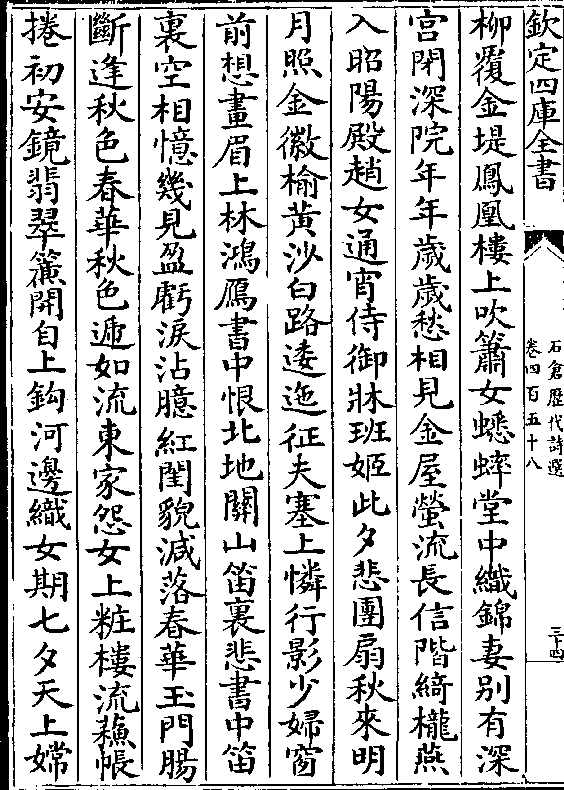 欽定四庫全書
石倉歷代詩選
卷四百五十八
三十四
柳覆金堤鳳凰樓上吹簫女蟋蟀堂中織錦妻别有深
宫閉深院年年歲歲愁相見金屋螢流長信階綺櫳燕
入昭陽殿趙女通宵侍御牀班姬此夕悲團扇秋來明
月照金徽榆黄沙白路逶迤征夫塞上憐行影少婦窗
前想畫眉上林鴻鴈書中恨北地關山笛裏悲書中笛
裏空相憶幾見盈虧淚沾臆紅閨貌減落春華玉門腸
斷逢秋色春華秋色遞如流東家怨女上粧樓流蘇帳
捲初安鏡翡翠簾開自上鈎河邊織女期七夕天上嫦